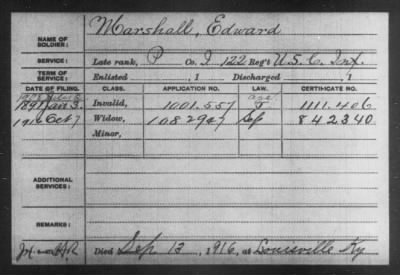 NAME OF SOLDIER: Marshall, Edward
SERVICE: Late rank, P Co. I, 122 Reg't U.S.C. Inf.
TERM OF SERVICE: Enlisted , 1 Discharged , 1
DATE OF FILING. CLASS. APPLICATION NO. LAW. CERTIFICATE NO.
1891 Jan 3. Invalid, 1001.557 age 1111.406
1916 Oct 7 Widow, 1082947 Sep 842340
Minor,
ADDITIONAL SERVICES:
REMARKS:
Died Sep 13, 1916, at Louisville Ky